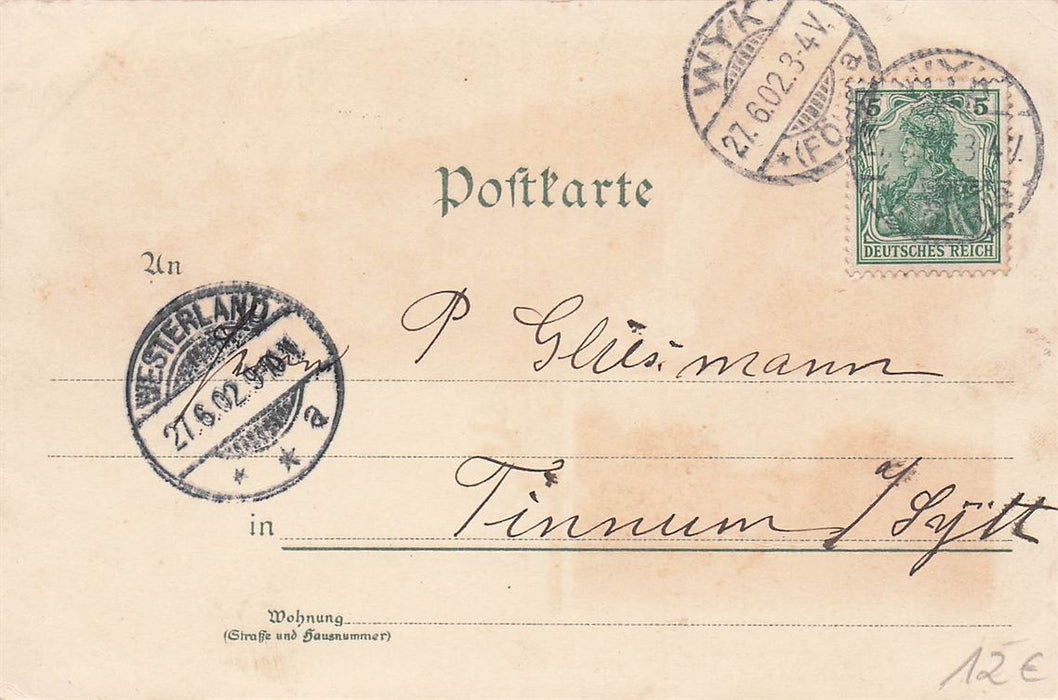 WYK
27.6.02.3-4V.
a
*(FÖ
WYK
3-4V.
5 5
DEUTSCHES REICH
Postkarte
An
WESTERLAND
27.6.02.9-10N
a
* *
P Gliesmann
in Tinnum a/Sÿlt
Wohnung
(Straße und Hausnummer)
12 €